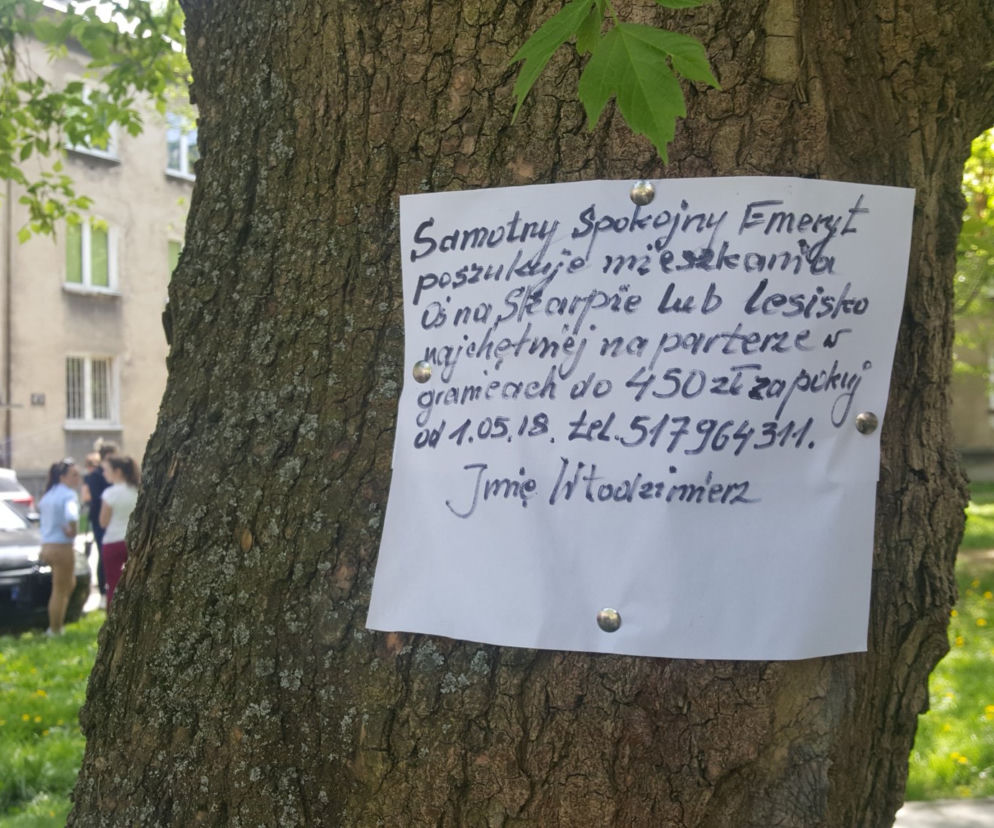 Samotny Spokojny Emeryt
poszukuje mieszkania
Oś na Skarpie lub Lesisko
najchętniej na parterze w
granicach do 450 zł za pokój
od 1.05.18. tel. 517964311.
Jmię Włodzimierz